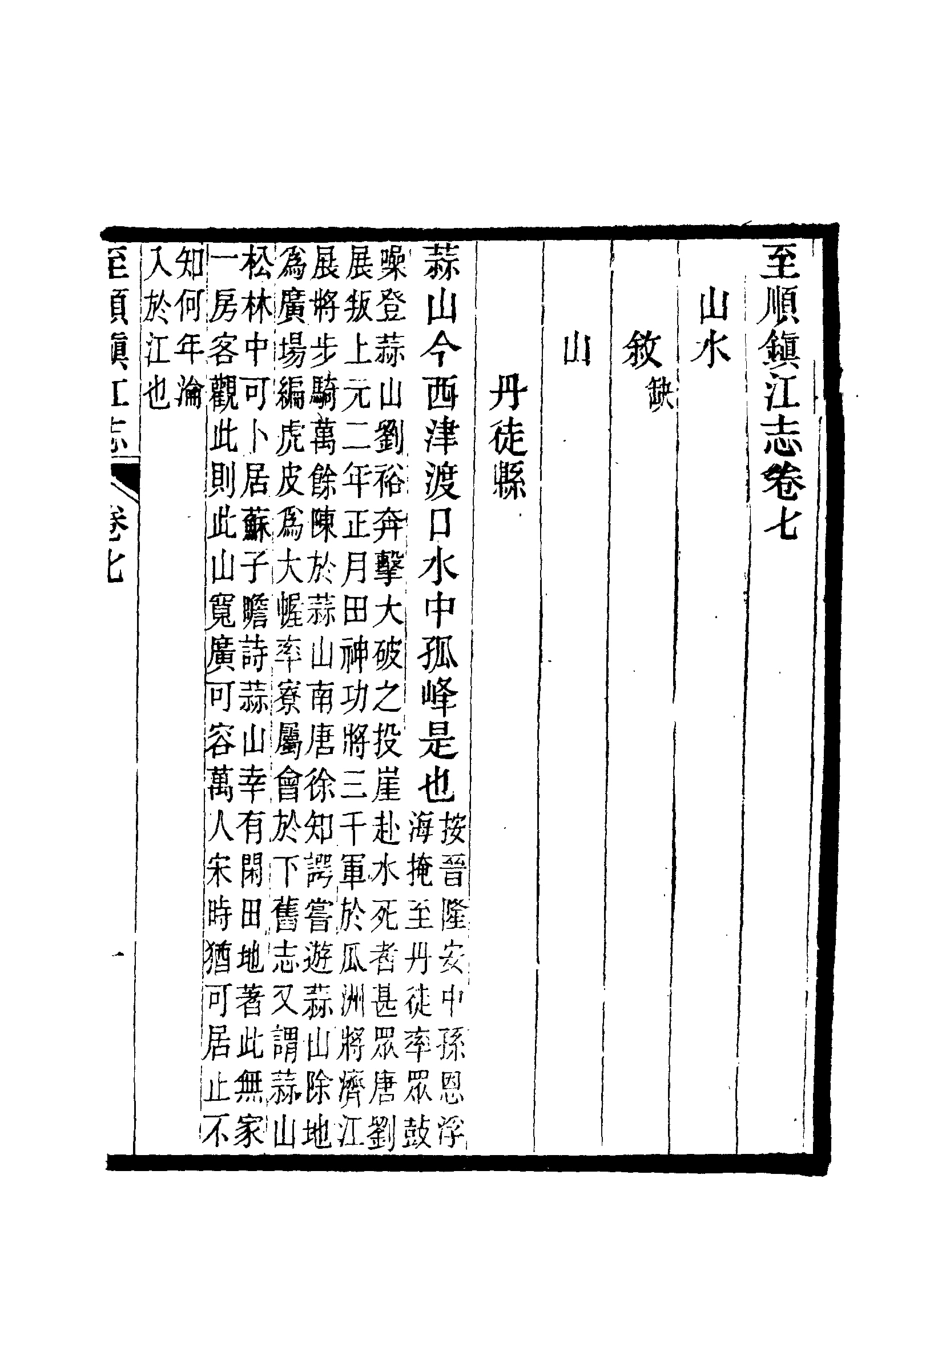 至順鎮江志卷七
山水
敘缺
山
丹徒縣
蒜山今西津渡口水中孤峰是也按晉隆安中孫恩浮
海掩至丹徒率眾鼓
噪登蒜山劉裕奔擊大破之投崖赴水死者甚眾唐劉
展叛上元二年正月田神功將三千軍於瓜洲將濟江
展將步騎萬餘陳於蒜山南唐徐知諤嘗遊蒜山除地
爲廣場編虎皮爲大幄率寮屬會於下舊志又謂蒜山
松林中可卜居蘇子瞻詩蒜山幸有閑田地著此無家
一房客觀此則此山寬廣可容萬人宋時猶可居止不
知何年淪
入於江也
至順鎮江志 卷七 一